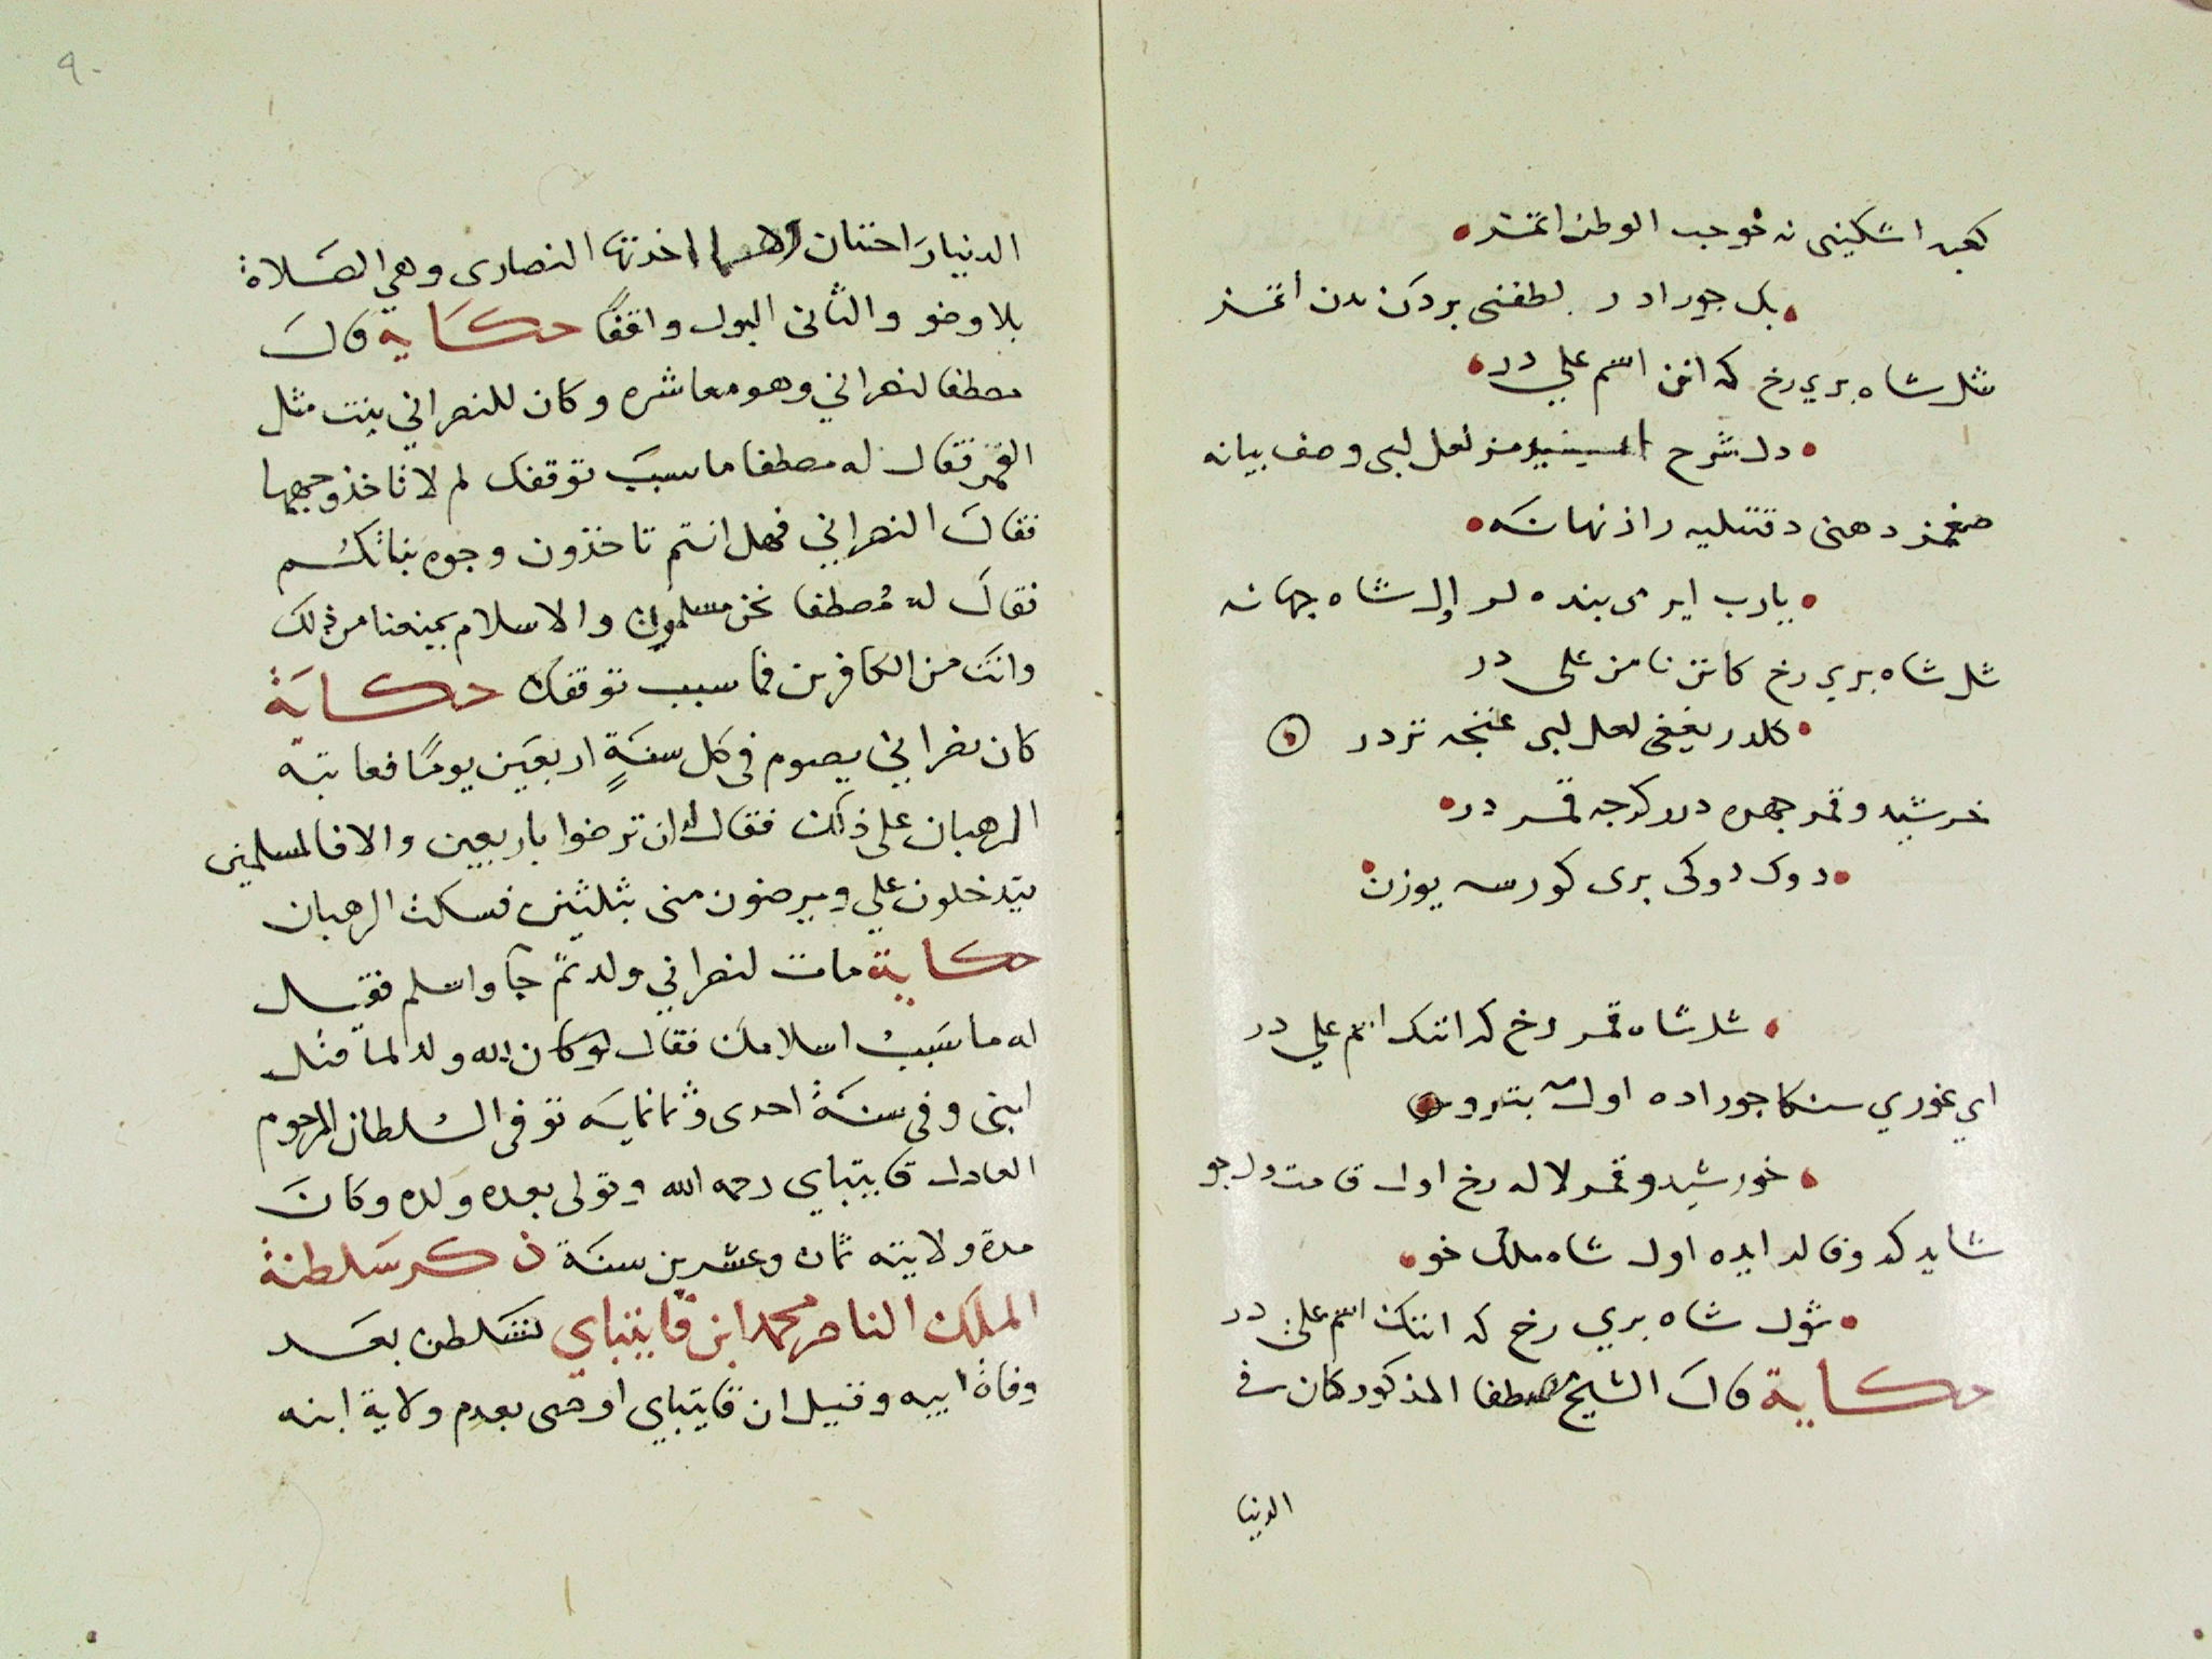 كعبه اشكينى نه خوجب الوطن اتمز
بك جور ادر لطفنى بردكن بدن اتمز
شل شاه بري رخ كه انن اسم علي در
دل شرح لعل لبى وصف بيانه
صغمز دهنى دقتليه راز نهانه
يارب ايرمى بنده لر اول شاه جهانه
شل شاه بري رخ كانن نامن على در
كلدر يغيغى لعل لبى غنجه تردر
خرشيد وقمر جهره در كرجه قمر در
دوك دوكى برى كورسه يوزن
شل شاه قمر رخ كه انك اسم علي در
اي غوري سنكا جور اده اول بت
خورشيد وقمر لاله رخ اول قامت دلجو
شايد كه وفالر ايده اول شاه ملك خو
شول شاه بري رخ كه انك اسم على در
حكاية قال الشيخ مصطفا المذكور كان في
الدنيا
٩٠
الدنيا راختان اخذتها النصارى وهي الصلاة
بلا وضو والثانى البول واقفًا حكاية قال
مصطفا لنصراني وهو معاشره وكان للنصراني بنت مثل
القمر فقال له مصطفا ما سبب توقفك لم لا تاخذ وجهها
فقال النصراني فهل انتم تاخذون وجوه بناتكم
فقال له مصطفا نحن مسلمون والاسلام يمنعنا من ذلك
وانت من الكافرين فما سبب توقفك حكاية
كان نصراني يصوم في كل سنةٍ اربعين يومًا فعاتبه
الرهبان على ذلك فقال لهم ان ترضوا باربعين والا فالمسلمين
يتدخلون علي ويرضون منى بثلثين فسكت الرهبان
حكاية مات لنصراني ولد ثم جا واسلم فقيل
له ما سبب اسلامك فقال لو كان لله ولد لما قتل
ابنى وفي سنة احدى وثمانمايه توفى السلطان المرحوم
العادل قايتباي رحمه الله وتولى بعده ولده وكان
مدة ولايته ثمان وعشرين سنة ذكر سلطنة
الملك الناصر محمد ابن قايتباي تسلطن بعد
وفاة ابيه وقيل ان قايتباي اوصى بعدم ولاية ابنه